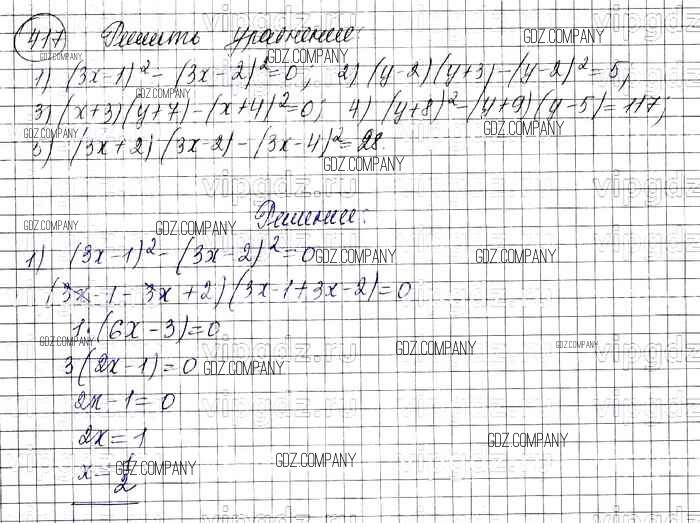 417 Решить уравнение:
1) (3x-1)² - (3x-2)² = 0; 2) (y-2)(y+3) - (y-2)² = 5;
3) (x+3)(y+7) - (x+4)² = 0; 4) (y+8)² - (y+9)(y-5) = 117;
5) (3x+2)(3x-2) - (3x-4)² = 28
Решение:
1) (3x-1)² - (3x-2)² = 0
(3x-1-3x+2)(3x-1+3x-2) = 0
1·(6x-3) = 0
3(2x-1) = 0
2x-1 = 0
2x = 1
x = 1/2
GDZ.COMPANY
vipgdz.ru